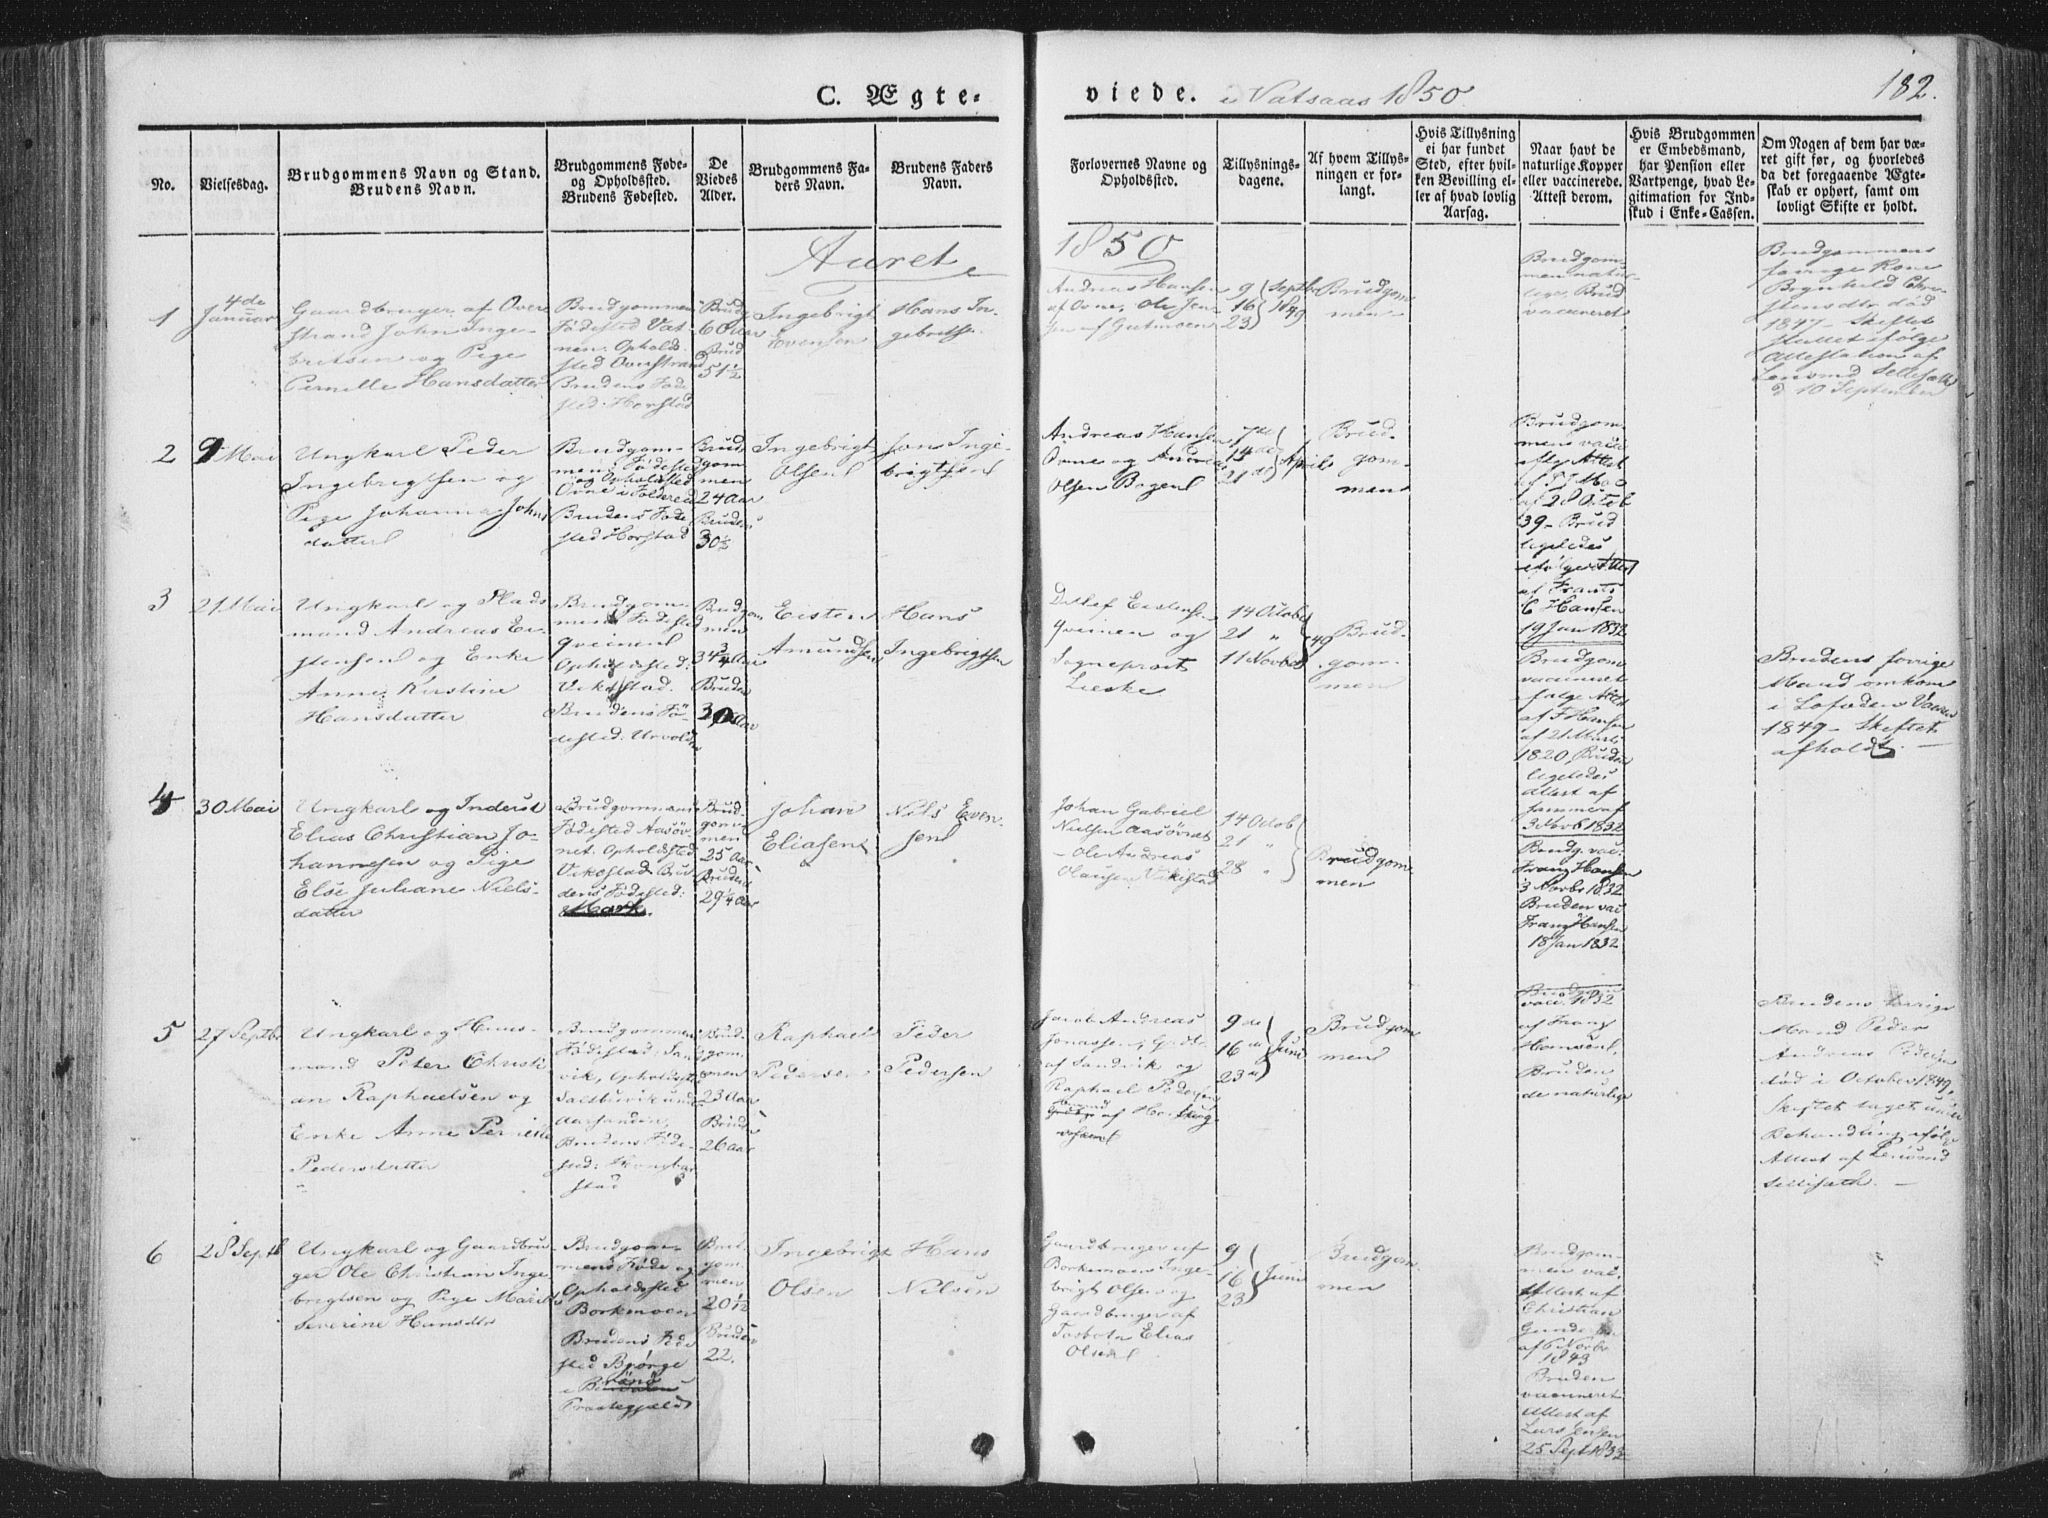 C. Ægte-
viede. i Vatsaas 1850.
182.
No.
Vielsesdag.
Brudgommens Navn og Stand.
Brudens Navn.
Brudgommens Føde-
og Opholdssted.
Brudens Fødested.
De
Viedes
Alder.
Brudgommens Fa-
ders Navn.
Brudens Faders
Navn.
Forlovernes Navne og
Opholdssted.
Tillysnings-
dagene.
Af hvem Tillys-
ningen er for-
langt.
Hvis Tillysning
ei har fundet
Sted, efter hvil-
ken Bevilling el-
ler af hvad lovlig
Aarsag.
Naar havt de
naturlige Kopper
eller vaccinerede.
Attest derom.
Hvis Brudgommen
er Embedsmand,
har Pension eller
Vartpenge, hvad Le-
gitimation for Ind-
skud i Enke-Cassen.
Om Nogen af dem har væ-
ret gift før, og hvorledes
da det foregaaende Ægte-
skab er ophørt, samt om
lovligt Skifte er holdt.
Aaret
1850
1
4de
Januar
Gaardbruger af Ovne
strand John Inge-
britsen og Pige
Pernille Hansdatter
Brudgommens
Fødested Vat-
nen. Ophold-
sted Ovnstrand
Brudens Føde
sted. Horstad
Brudg
60 Aar
Brud
51 1/2
Ingebrigt
Evensen
Hans In-
gebrigtsen
Andreas Hansen
af Ovne, Ole Jen-
sen af
9
16
23
Septbr
1849
Brudgom
men
Brudgom-
men natur-
lige, Brud
vaccineret
Brudgommens
forrige Kone
død
1847 - Skiftet
sluttet ifølge
Attestation af
Lensmd Sellisæth
d 10 September
2
9 Mai
Ungkarl Peder
Ingebrigtsen og
Pige Johanna Johns
datter
Brudgom-
mens Fødested
og Opholdsted
Ovne i Foldereid
Brudens Føde
sted Horstad
Brud
gom
men
24 Aar
Brudens
30 1/2
Ingebrigt
Olsen
Jon Inge-
brigtsen
Andreas Hansen
Ovne og Andreas
Olsen Bogen
7de
14de
21de
April
Brud-
gom-
men
Brudgom-
mens vacc
Attest
af 28 Octob
39 - Brud
ligeledes
ifølge Attest
af Frants
Hansen
19 Jan 1832
3
21 Mai
Ungkarl og Plads
mand Andreas Ei-
stensen og Enke
Anne Kirstine
Hansdatter
Brudgom-
mens Fødested
Qveinen
Opholdssted:
Vikestad.
Brudens Fø-
dested: Urvolden
Brudgom
men
34 3/4 Aar
Bruden
Aar
Eisten
Amundsen
Hans
Ingebrigtsen
Detlef Eistensen
Qveinen og
Sogneprest
Lieske
14 Octob
21 "
11 Novbr
49
Brud-
gom-
men
Brudgom
vaccineret
ifølge Attest
af F Hansen
af 21 Marts
1820, Bruden
ligeledes
Attest af
samme af
3 Novb 1832
Brudens forrige
Mand omkom
i Lofoden Vaaren
1849 - Skiftet
afholdt. —
4
30 Mai
Ungkarl og Inderst
Elias Christian Jo-
hannesen og Pige
Else Juliane Niels-
datter
Brudgommens
Fødested Aasøv-
net. Opholdsted
Vikestad Bru-
dens Fødested:
Mark.
Brud-
gom-
men
25 Aar
Brudens
29 1/4 Aar
Johan
Eliasen
Nils Even-
sen
Johan Gabriel
Nielsen Aasøvnet
- Ole Andreas
Olausen Vikestad
14 Octob
21 "
28 "
Brudgom
men
Brudg. vac.
Franz Hansen
3 Novbr 1832
Bruden vac
Franz Hansen
18 Jan 1832
5
27 Septbr
Ungkarl og Huus-
mand Peter Christi-
an Raphaelsen og
Enke Anne Pernille
Pedersdatter
Brudgommens
Fødested: San-
vik, Opholdssted
Brudens Føde-
sted:
stad
Brud-
gom-
men
23 Aar
Bruden
26 Aar
Raphael
Pedersen
Peder
Pedersen
Jacob Andreas
Jonassen,
af Sandvik og
Raphael Pedersen
9de
16de
23de
Juni
Brudgom
men
Brudgom
vacc. 1832
af Franz
Hansen,
Bruden
de naturlige
Brudens forrige
Mand Peder
Andreas Pedersen
død i October 1849,
Skiftet taget under
Behandling ifølge
Attest af Lensmd
Sellisæth. —
6
28 Septb
Ungkarl og Gaardbru-
ger Ole Christian Inge
brigtsen og Pige Marith
Severine Hansdtr
Brudgom-
mens Føde og
Opholdssted
Borkmoen
Brudens Føde
sted Bjørge
i Bindalen
Præstegjæld
Brud-
gom-
men
20 1/2
Bruden
22.
Ingebrigt
Olsen
Hans
Nilsen
Gaardbruger af
Borkmoen Inge-
brigt Olsen og
Gaardbruger af
Tosbotn Elias
Olsen
9
16
23
Juni
Brudgom
men
Brudgom-
men vac.
Attest af
Christian
af 6 Novbr
1843
Bruden
vaccineret
Attest af
Lars Jensen
25 Sept 1832